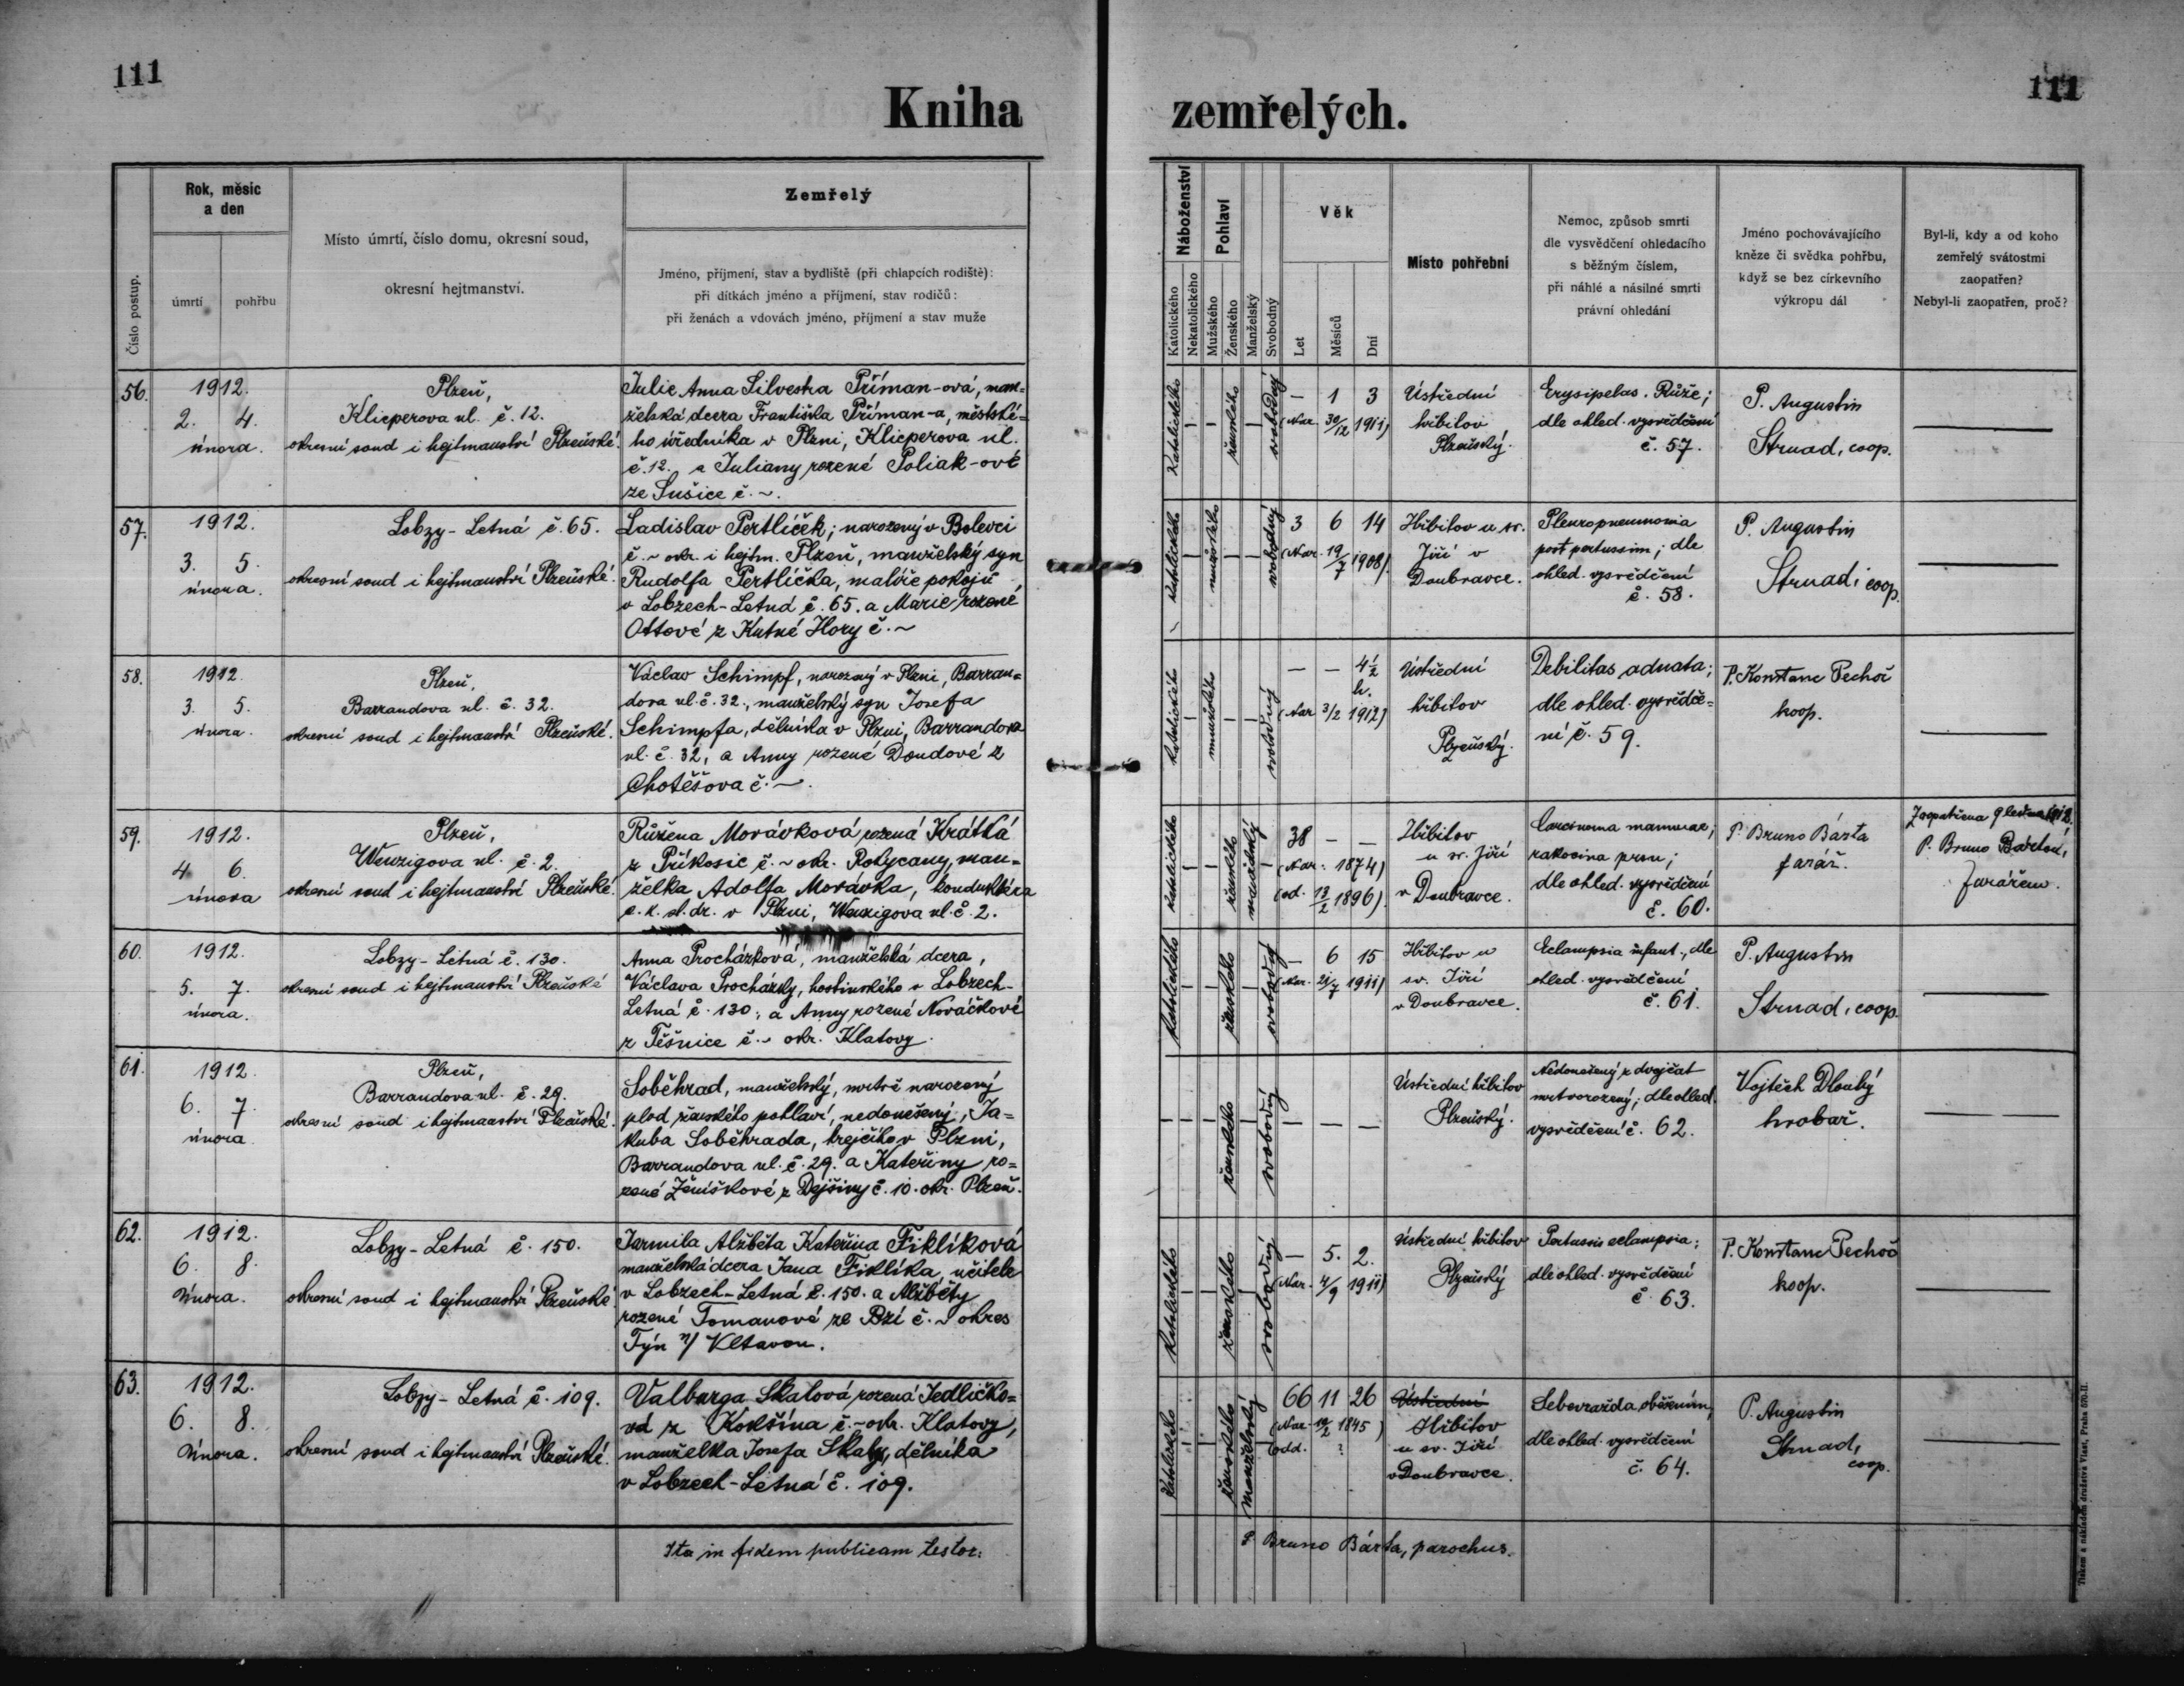 111
111
Kniha zemřelých.
Číslo postup.
Rok, měsíc
a den
úmrtí
pohřbu
Místo úmrtí, číslo domu, okresní soud,
okresní hejtmanství.
Zemřelý
Jméno, příjmení, stav a bydliště (při chlapcích rodiště):
při dítkách jméno a příjmení, stav rodičů:
při ženách a vdovách jméno, příjmení a stav muže
Náboženství
Katolického
Nekatolického
Pohlaví
Mužského
Ženského
Manželský
Svobodný
Věk
Let
Měsíců
Dní
Místo pohřební
Nemoc, způsob smrti
dle vysvědčení ohledacího
s běžným číslem,
při náhlé a násilné smrti
právní ohledání
Jméno pochovávajícího
kněze či svědka pohřbu,
když se bez církevního
výkropu dál
Byl-li, kdy a od koho
zemřelý svátostmi
zaopatřen?
Nebyl-li zaopatřen, proč?
56.
1912.
2. 4.
února.
Plzeň,
Klicperova ul. č. 12.
okresní soud i hejtmanství Plzeňské.
Julie Anna Silvestra Příman-ová, man=
želská dcera Františka Příman-a, městské=
ho úředníka v Plzni, Klicperova ul.
č. 12. a Juliany rozené Poliak-ové
ze Sušice č. ~.
katolického
ženského
svobodný
— 1 3
(Nar. 30/12 1911)
Ústřední
hřbitov
Plzeňský.
Erysipelas. Růže;
dle ohled. vysvědčení
č. 57.
P. Augustin
Strnad, coop.
57.
1912.
3. 5.
února.
Lobzy-Letná č. 65.
okresní soud i hejtmanství Plzeňské.
Ladislav Pertlíček; narozený v Bolevci
č. ~ okr. i hejtm. Plzeň, manželský syn
Rudolfa Pertlíčka, malíře pokojů
v Lobzech-Letná č. 65. a Marie rozené
Ottové z Kutné Hory č. ~
katolického
mužského
svobodný
3 6 14
(Nar. 19/7 1908).
Hřbitov u sv.
Jiří v
Doubravce.
Pleuropneumonia
post pertussim; dle
ohled. vysvědčení
č. 58.
P. Augustin
Strnad, coop.
58.
1912
3. 5.
února.
Plzeň,
Barrandova ul. č. 32.
okresní soud i hejtmanství Plzeňské.
Václav Schimpf, narozený v Plzni, Barran=
dova ul. č. 32., manželský syn Josefa
Schimpfa, dělníka v Plzni, Barrandova
ul. č. 32, a Anny rozené Doudové z
Chotěšova č. ~.
katolického
mužského
svobodný
— — 4½
h.
(Nar 3/2 1912)
Ústřední
hřbitov
Plzeňský.
Debilitas adnata;
dle ohled. vysvědče=
ní č. 59.
P. Konstanc Pechoč
koop.
59.
1912.
4 6.
února
Plzeň,
Wenzigova ul. č. 2.
okresní soud i hejtmanství Plzeňské.
Růžena Morávková rozená Krátká
z Příkosic č. ~ okr. Rokycany, man=
želka Adolfa Morávka, konduktéra
c. k. st. dr. v Plzni, Wenzigova ul. č. 2.
katolického
ženského
manželský
38 — —
(Nar. 1874)
(od. 13/2 1896).
Hřbitov
u sv. Jiří
v Doubravce.
Carcinoma mammae;
rakovina prsu;
dle ohled. vysvědčení
č. 60.
P. Bruno Bárta
farář.
Zaopatřena 9 ledna 1912.
P. Bruno Bártou,
farářem.
60.
1912.
5. 7.
února.
Lobzy-Letná č. 130.
okresní soud i hejtmanství Plzeňské
Anna Procházková, manželská dcera,
Václava Procházky, hostinského v Lobzech-
Letná č. 130; a Anny rozené Nováčkové
z Těšnice č. ~ okr. Klatovy.
katolického
ženského
svobodný
— 6 15
(Nar. 21/7 1911)
Hřbitov u
sv. Jiří
v Doubravce.
Eclampsia infant., dle
ohled. vysvědčení
č. 61.
P. Augustin
Strnad, coop.
61.
1912.
6. 7.
února.
Plzeň,
Barrandova ul. č. 29.
okresní soud i hejtmanství Plzeňské.
Soběhrad, manželský, mrtvě narozený
plod ženského pohlaví, nedonešený, Ja=
kuba Soběhrada, krejčího v Plzni,
Barrandova ul. č. 29. a Kateřiny ro=
zené Ženíškové z Dejšiny č. 10. okr. Plzeň.
ženského
svobodný
— — —
Ústřední hřbitov
Plzeňský.
Nedonošený z dvojčat
mrtvorozený; dle ohled.
vysvědčení č. 62.
Vojtěch Dlouhý
hrobař.
62.
1912.
6. 8.
února.
Lobzy-Letná č. 150.
okresní soud i hejtmanství Plzeňské
Jarmila Alžběta Kateřina Fiklíková
manželská dcera Jana Fiklíka, učitele
v Lobzech-Letná č. 150. a Alžběty
rozené Tomanové ze Bzí č. ~ okres
Týn n/ Vltavou.
katolického
ženského
svobodný
— 5. 2.
(Nar. 4/9 1911)
Ústřední hřbitov
Plzeňský
Pertussis eclampsia;
dle ohled. vysvědčení
č. 63.
P. Konstanc Pechoč
koop.
63.
1912.
6. 8.
února.
Lobzy-Letná č. 109.
okresní soud i hejtmanství Plzeňské.
Valburga Skalová, rozená Jedličko=
vá z Kokšína č. ~ okr. Klatovy,
manželka Josefa Skaly, dělníka
v Lobzech-Letná č. 109.
katolického
ženského
manželský
66 11 26
(Nar. 10/2 1845)
odd. ?
Ústřední
Hřbitov
u sv. Jiří
v Doubravce.
Sebevražda oběšením,
dle ohled. vysvědčení
č. 64.
P. Augustin
Strnad,
coop.
Ita in fidem publicam testor:
P. Bruno Bárta, parochus.
Tiskem a nákladem družstva Vlast, Praha 570-II.